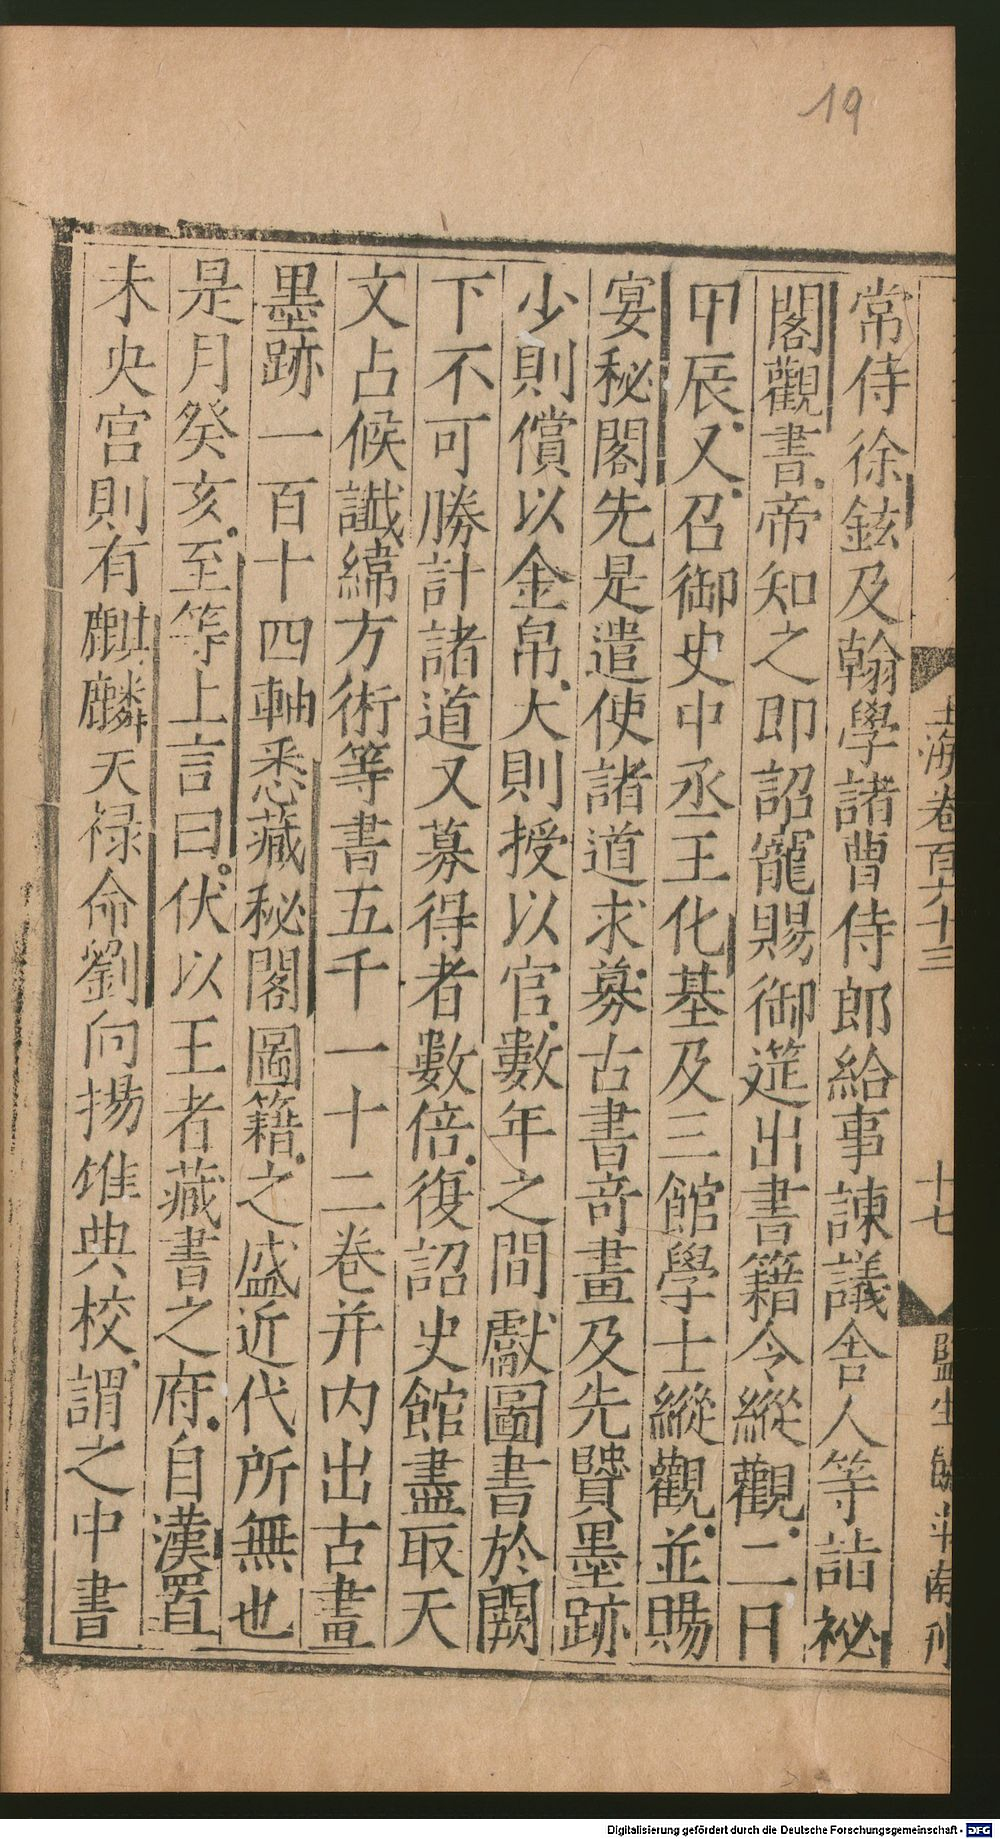 19
玉海卷百六十三
十七
常侍徐鉉及翰學諸曹侍郎給事諫議舍人等詣祕
閣觀書帝知之即詔寵賜御筵出書籍令縱觀二日
甲辰又召御史中丞王化基及三館學士縱觀並賜
宴秘閣先是遣使諸道求募古書奇畫及先賢墨跡
少則償以金帛大則授以官數年之間獻圖書於闕
下不可勝計諸道又募得者數倍復詔史館盡取天
文占候讖緯方術等書五千一十二卷并內出古畫
墨跡一百十四軸悉藏秘閣圖籍之盛近代所無也
是月癸亥至等上言曰伏以王者藏書之府自漢置
未央宮則有麒麟天祿命劉向揚雄典校謂之中書
Digitalisierung gefördert durch die Deutsche Forschungsgemeinschaft - DFG